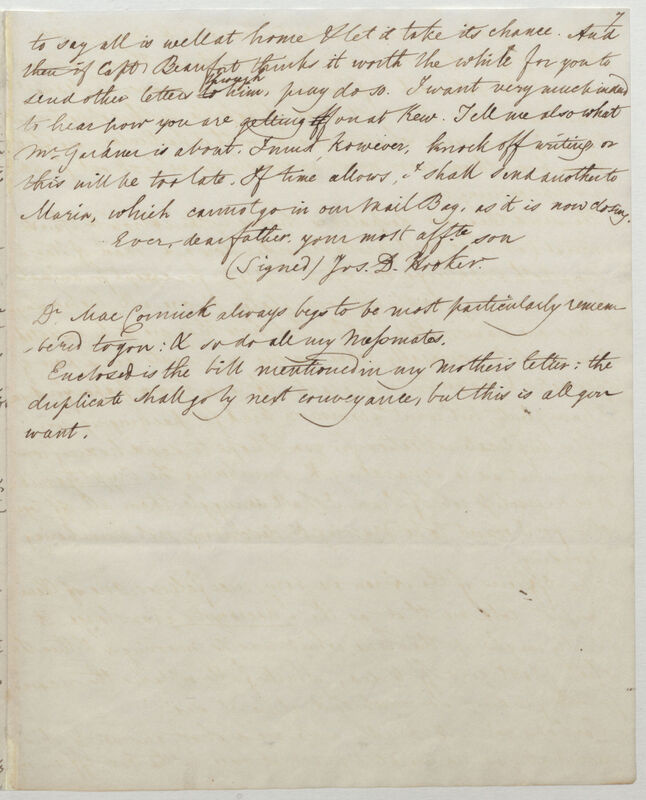 7
to say all is well at home & let it take its chance. And
then if Capt. Beaufort thinks it worth the while for you to
send other letters to through him, pray do so. I want very much indeed
to hear how you are getting off on at Kew. Tell me also what
Mr. Gardner is about. I must, however, knock off writing, or
this will be too late. If time allows, I shall send another to
Maria, which cannot go in our Mail Bag, as it is now closing.
Ever, dear father, your most affte. son
(Signed) Jos. D. Hooker.
Dr. Mac Cormick always begs to be most particularly remem
-bered to you: & so do all my Messmates.
Enclosed is the bill mentioned in my mother's letter: the
duplicate shall go by next conveyance, but this is all you
want.